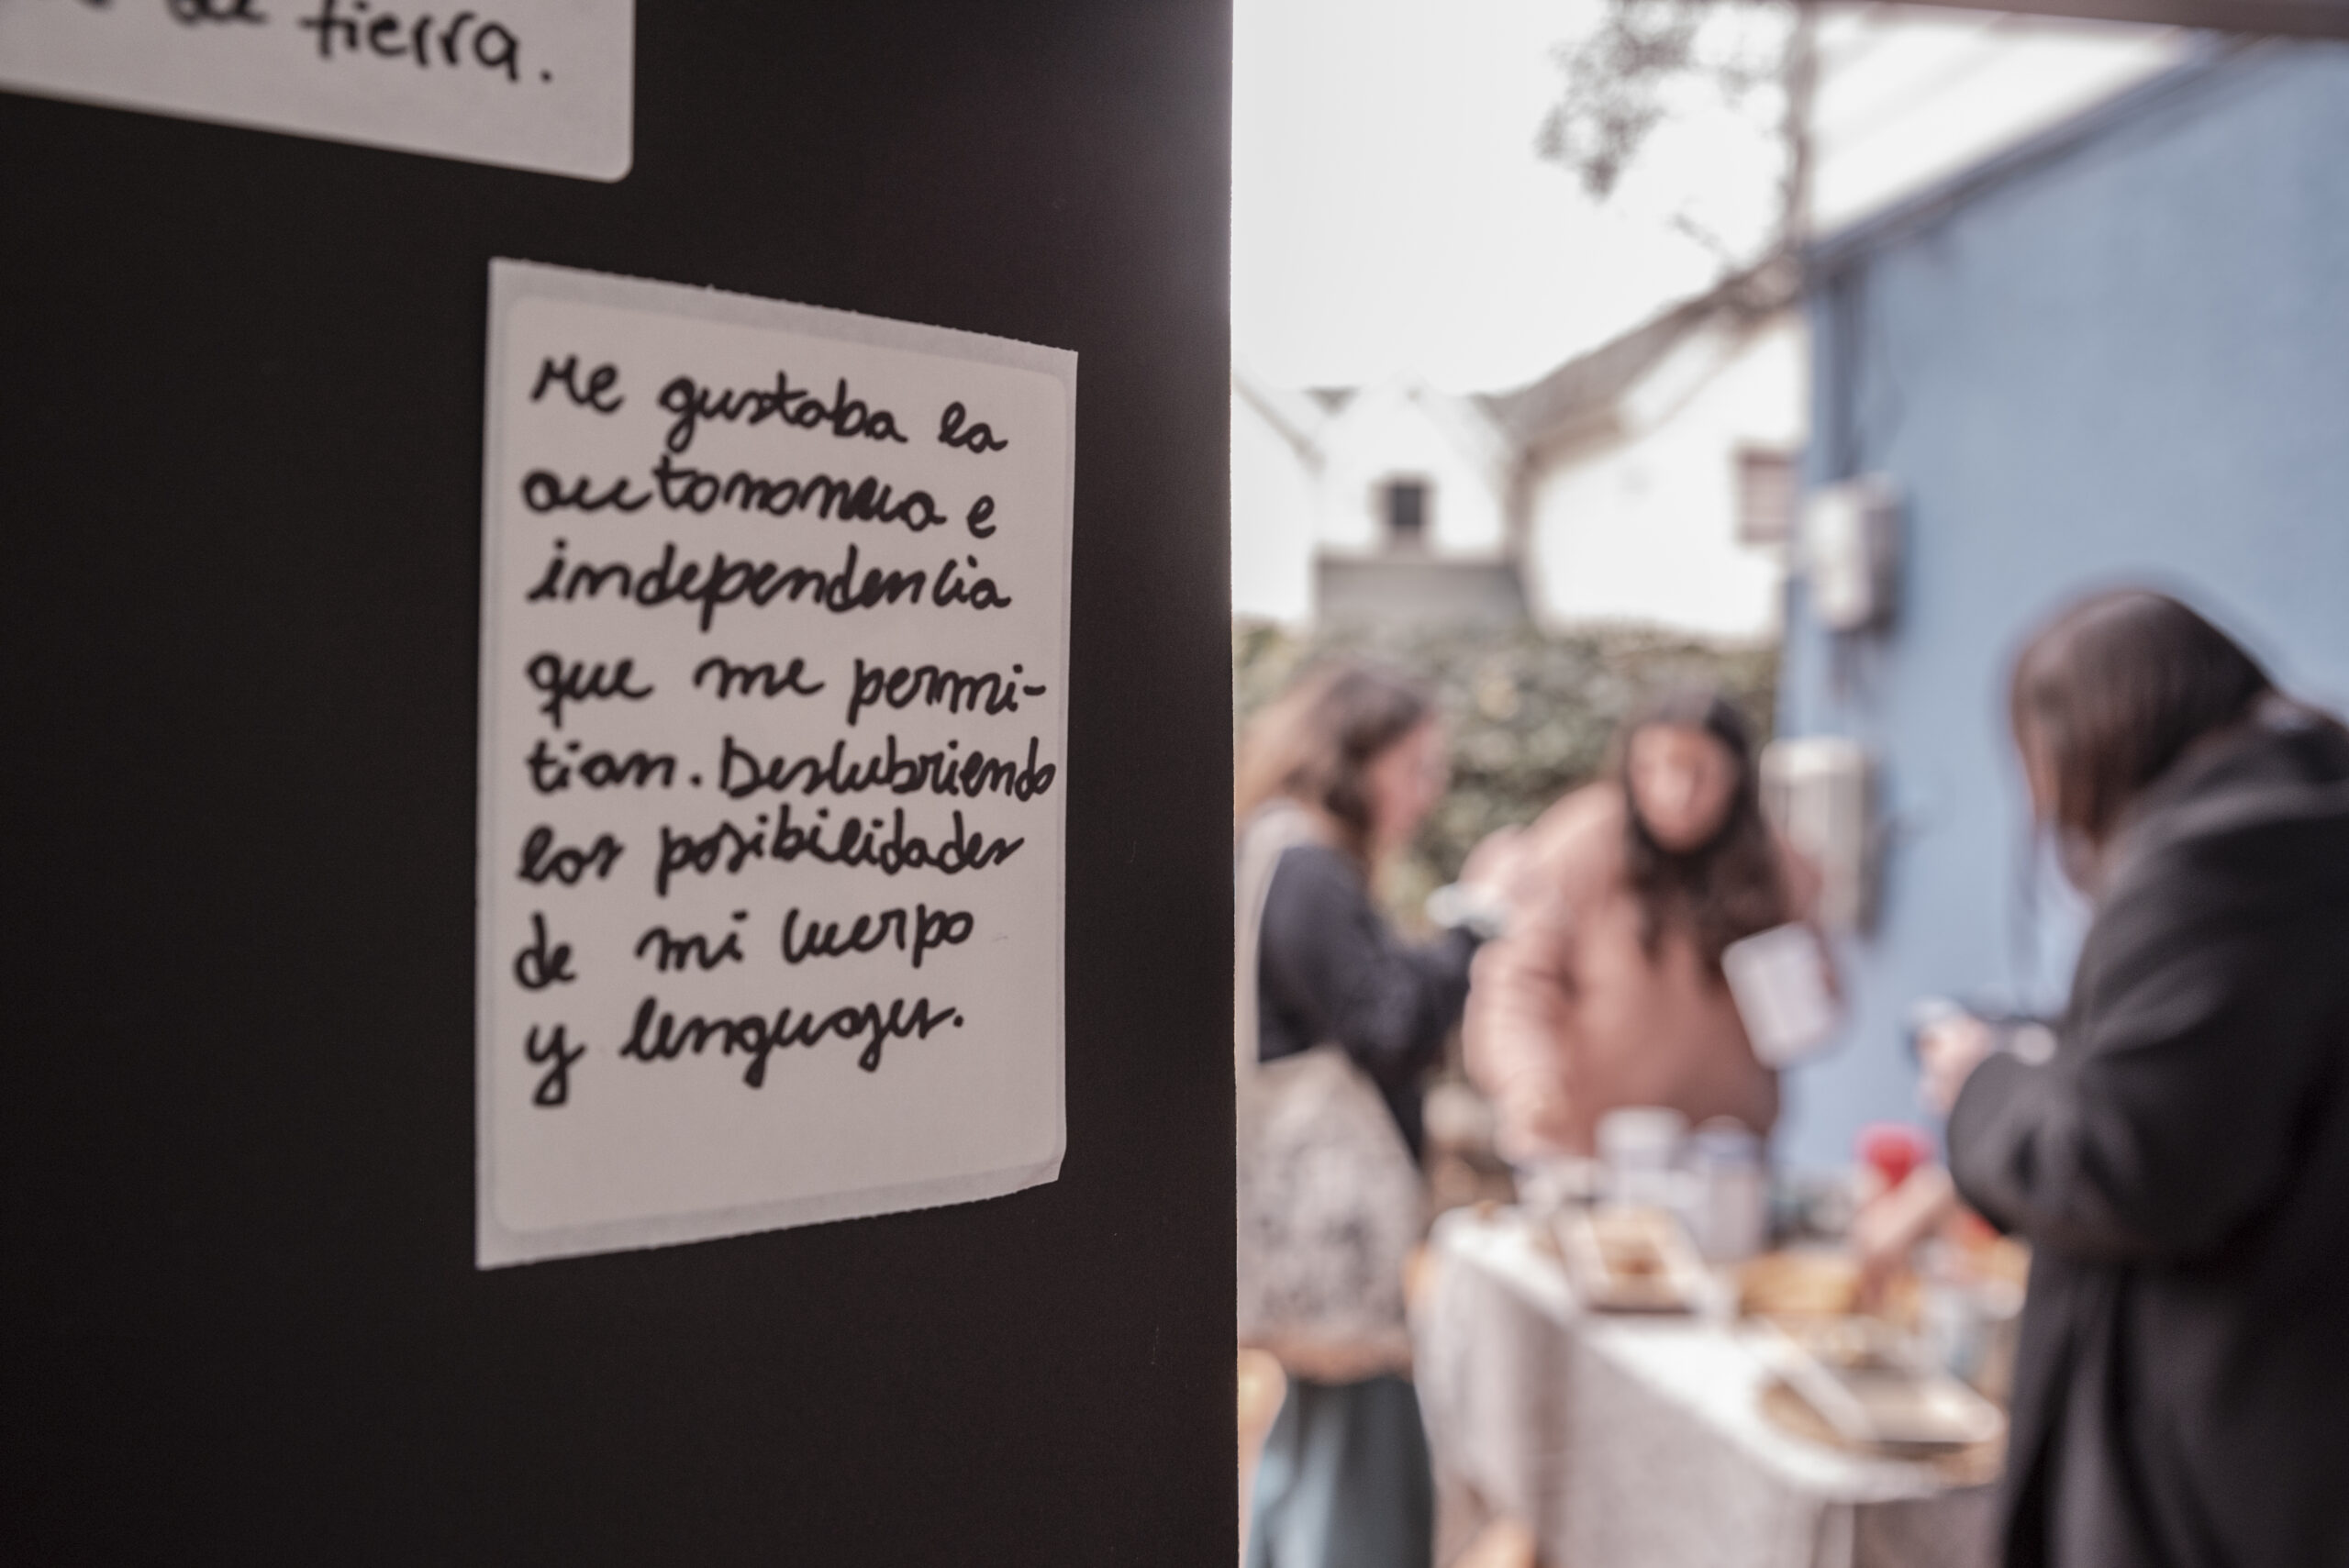 tierra.
Me gustaba la
autonomia e
independencia
que me permi-
tian. Descubriendo
las posibilidades
de mi cuerpo
y lenguajes.